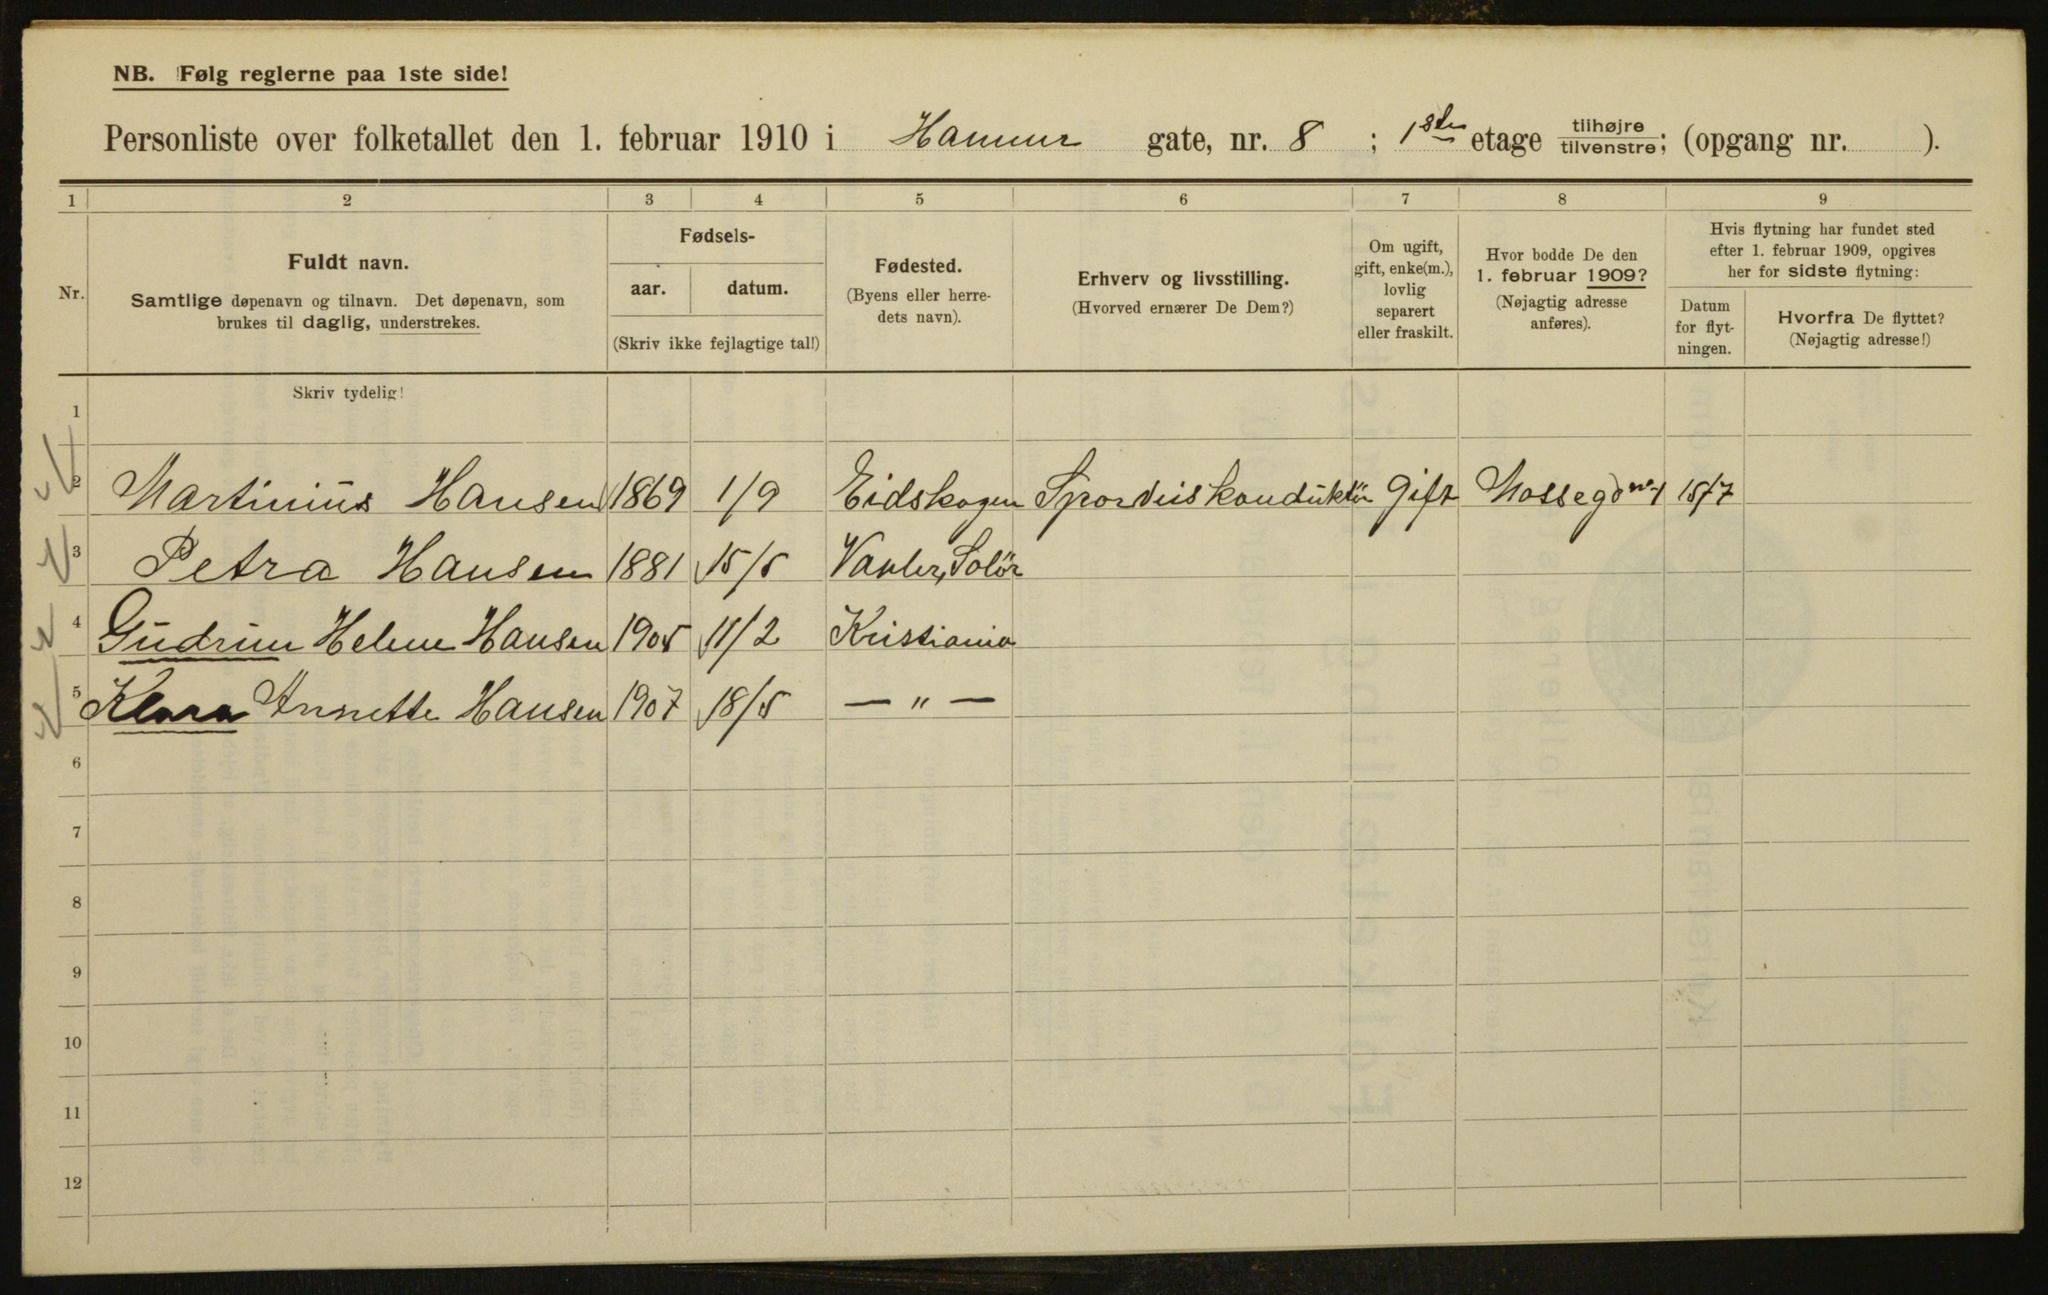 NB. Følg reglerne paa 1ste side!
Personliste over folketallet den 1. februar 1910 i Hammer gate, nr. 8 ; 1ste etage tilhøjre tilvenstre; (opgang nr. ).
1 2 3 4 5 6 7 8 9
Nr.
Fuldt navn.
Samtlige døpenavn og tilnavn. Det døpenavn, som
brukes til daglig, understrekes.
Fødsels-
aar. datum.
(Skriv ikke fejlagtige tal!)
Fødested.
(Byens eller herre-
dets navn).
Erhverv og livsstilling.
(Hvorved ernærer De Dem?)
Om ugift,
gift, enke(m.),
lovlig
separert
eller fraskilt.
Hvor bodde De den
1. februar 1909?
(Nøjagtig adresse
anføres).
Hvis flytning har fundet sted
efter 1. februar 1909, opgives
her for sidste flytning:
Datum
for flyt-
ningen.
Hvorfra De flyttet?
(Nøjagtig adresse!)
Skriv tydelig!
1
2 Martinius Hansen 1869 1/9 Eidskogen Sporveiskonduktör Gift Mossegd no 1 15/7
3 Petra Hansen 1881 15/5 Vaaler, Solör
4 Gudrun Helene Hansen 1905 11/2 Kristiania
5 Klara Annette Hansen 1907 18/5 — „ —
6
7
8
9
10
11
12